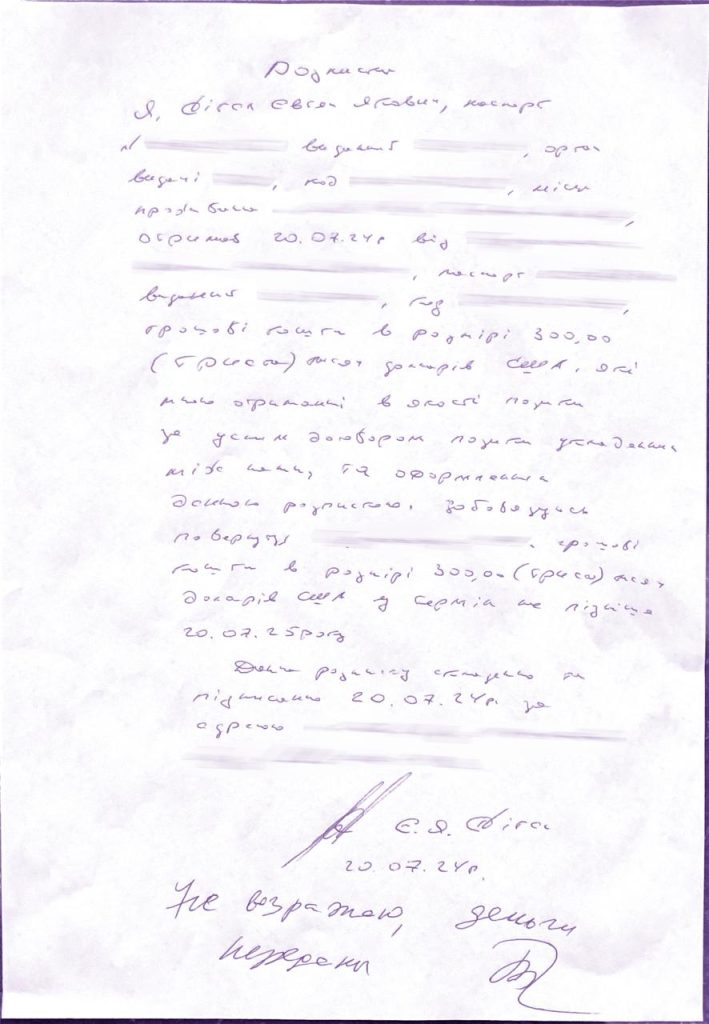 Розписка
Я, Євген Якович, паспорт
виданий , орган
видачі , код , місце
проживання ,
отримав 20.07.24р від
, паспорт
виданий , код ,
грошові кошти в розмірі 300,00
(триста) тисяч доларів США, які
мною отримані в якості позики
за усним договором позики укладеним
між нами, та оформленим
даною розпискою. Зобовязуюсь
повернути грошові
кошти в розмірі 300,00 (триста) тисяч
доларів США у термін не пізніше
20.07.25року
Дану розписку складено та
підписано 20.07.24р. за
адресою
Є.Я.
20.07.24р.
Не возражаю, деньги
переданы